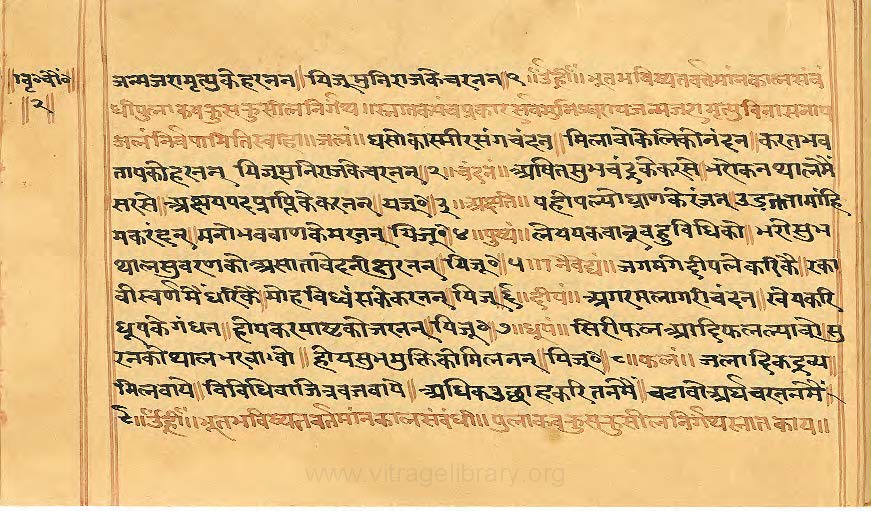 ॥वृ॰चौं॰
॥२॥
जन्मजरामृत्युकेहरनन॥ यिजूमुनिराजकेचरनन॥१॥उँह्रीँ॥भूतभविष्यतवर्तमांनकालसंबं
धीपुलाकवकुसकुसीलनिर्ग्रंथ॥स्नातकपंचप्रकारसर्वमुनिश्वरायजन्मजरामृत्युविनासनाय
जलंनिर्वपामितिस्वाहा॥जलं॥घसोंकास्मीरसंगचंदन॥मिलावोकेलिकोनंदन॥करतभव
तापकोहरनन यिजूमुनिराजकेचरनन॥२॥चंदनं॥अषितसुभचंद्रकेकरसे॥भरोकनथालमैं
सरसे॥अक्षयपदप्राप्तिकेकरनन॥यजू॰॥३॥अक्षतं॥पहोपल्योघ्राणकेरंजन॥उडतातामांहि
मकरंदन॥मनोभवबाणकेमरनन॥यिजू॰॥४॥पुष्पं॥लेययकवान्नवहुविधिको॥भरोसुभ
थालसुवरणको॥असातावेदनीक्षुरनन॥यिजू॰॥५॥नैवेद्यं॥जगमगेदीपलेकरिकै॥रका
वीस्वर्णमेंधरिकै॥मोहविध्वंसकेकरनन॥यिजू॰॥६॥दीपं॥अगरमलागरीचंदन॥खेयकरि
धूपकेगंधन॥होयकरमाष्टकोजरनन॥यिजू॰॥७॥धूपं॥सिरीफलआदिफलल्यावो॥सु
रनकोथालभरवावो॥होयसुभमुक्तिकोमिलनन॥यिजू॰॥८॥फलं॥जलादिकद्रव्य
मिलवाये॥विविधिवाजित्रवजवाये॥अधिकउछाहकरितनमैं॥चढावोअर्घचरननमैं॥
९॥उँह्रीँ॥भूतभविष्यतवर्तमांनकालसंबंधी॥पुलाकवकुसकुसीलनिर्ग्रंथस्नातकाय॥
www.vitragelibrary.org